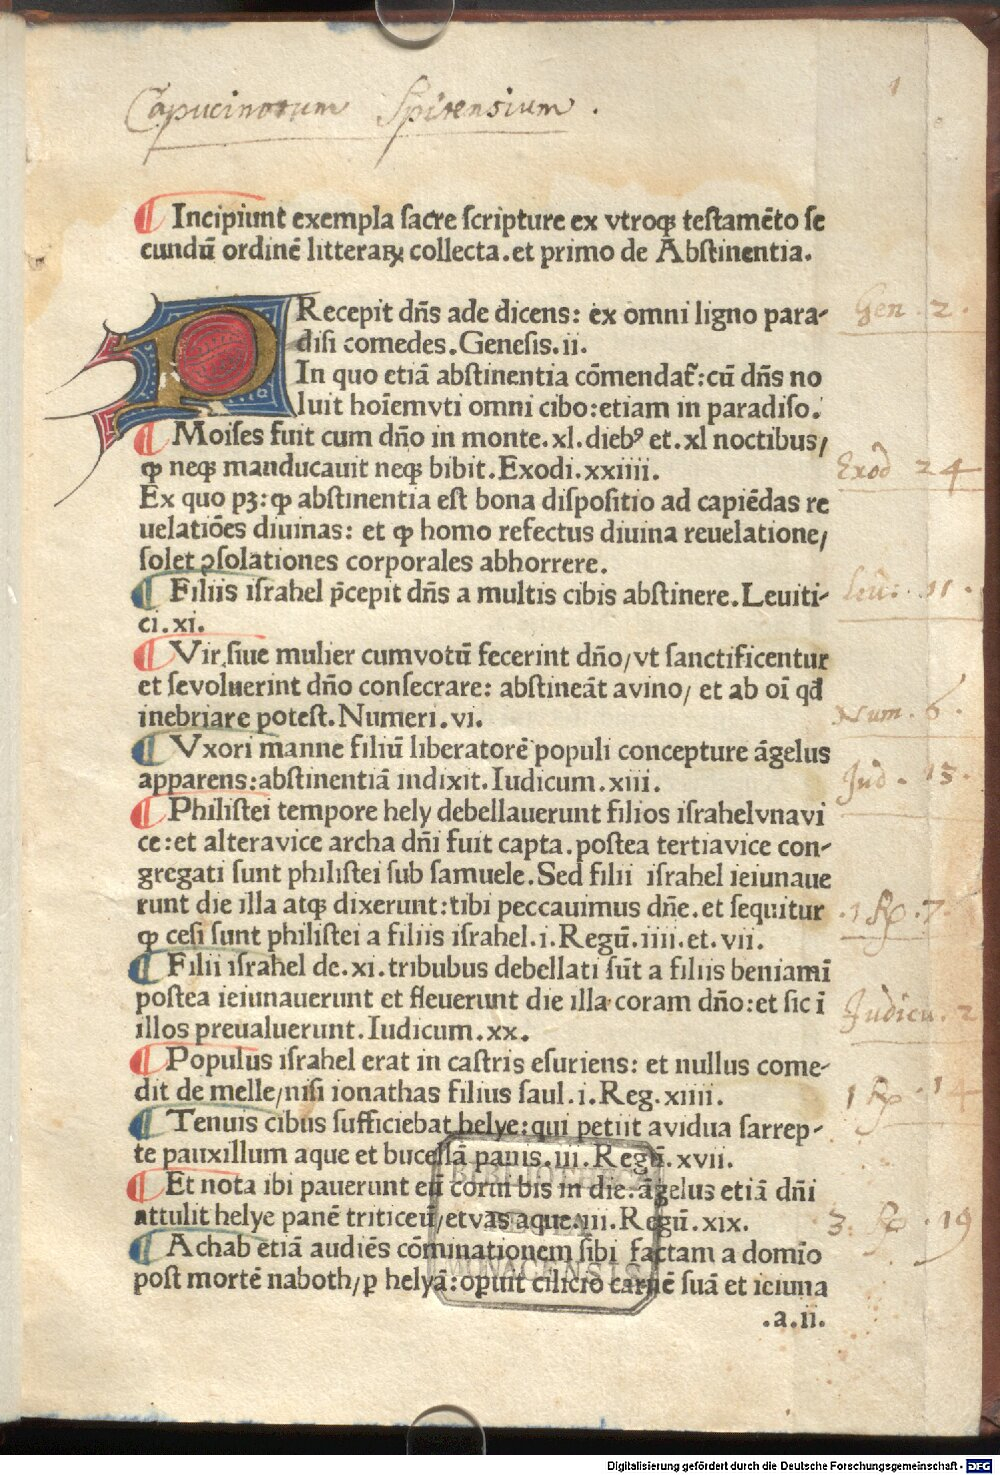 Capucinorum Spirensium.
1
¶ Incipiunt exempla sacre scripture ex vtroqꝫ testamēto se
cundū ordinē litteraꝝ collecta.et primo de Abstinentia.
PRecepit dn̄s ade dicens: ex omni ligno para-
disi comedes.Genesis.ii.
Gen. 2.
In quo etiā abstinentia cōmendat᷑:cū dn̄s no
luit hoīemvti omni cibo:etiam in paradiso.
¶ Moises fuit cum dn̄o in monte.xl.diebꝰ et.xl noctibus/
ꝙ neqꝫ manducauit neqꝫ bibit.Exodi.xxiiii.
Exod 24
Ex quo pꝫ:ꝙ abstinentia est bona dispositio ad capiēdas re
uelatiōes diuinas: et ꝙ homo refectus diuina reuelatione/
solet ꝯsolationes corporales abhorrere.
¶ Filiis israhel p̄cepit dn̄s a multis cibis abstinere.Leuiti-
ci.xi.
Leu: 11.
¶ Vir siue mulier cumvotū fecerint dn̄o/vt sanctificentur
et sevoluerint dn̄o consecrare: abstineāt avino/ et ab oī qd̄
inebriare potest.Numeri.vi.
Num. 6.
¶ Vxori manne filiū liberatorē populi concepture āgelus
apparens:abstinentiā indixit.Iudicum.xiii.
Jud. 13.
¶ Philistei tempore hely debellauerunt filios israhelvnavi
ce:et alteravice archa dn̄i fuit capta.postea tertiavice con-
gregati sunt philistei sub samuele.Sed filii israhel ieiunaue
runt die illa atqꝫ dixerunt:tibi peccauimus dn̄e.et sequitur
.1 Rp.7.
ꝙ cesi sunt philistei a filiis israhel.i.Regū.iiii.et.vii.
¶ Filii israhel de.xi.tribubus debellati sūt a filiis beniamī
postea ieiunauerunt et fleuerunt die illa coram dn̄o:et sic ī
illos preualuerunt.Iudicum.xx.
Judicu. 2
¶ Populus israhel erat in castris esuriens: et nullus come-
dit de melle/nisi ionathas filius saul.i.Reg.xiiii.
1 Rp. 14
¶ Tenuis cibus sufficiebat helye:qui petiit avidua sarrep-
te pauxillum aque et bucellā panis.iii.Regū.xvii.
¶ Et nota ibi pauerunt eū corui bis in die:āgelus etiā dn̄i
attulit helye panē triticeū/etvas aque.iii.Regū.xix.
3. Rp. 19
¶ Achab etiā audiēs cōminationem sibi factam a domīo
post mortē naboth/ꝑ helyā:opuit cilicio carnē suā et ieiuna
.a.ii.
BIBLIOTHECA
REGIA
MONACENSIS
Digitalisierung gefördert durch die Deutsche Forschungsgemeinschaft - DFG